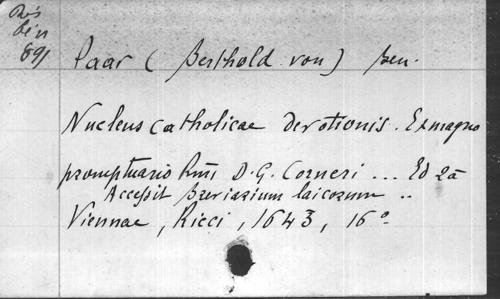 Rés
bis
891
Paar (Berthold von) Ben.
Nucleus catholicae devotionis. Ex magno
promptuario Rmi D. G. Corneri ... Ed 2a
Accessit Breviarium laicorum ..
Viennae, Ricci, 1643, 16°